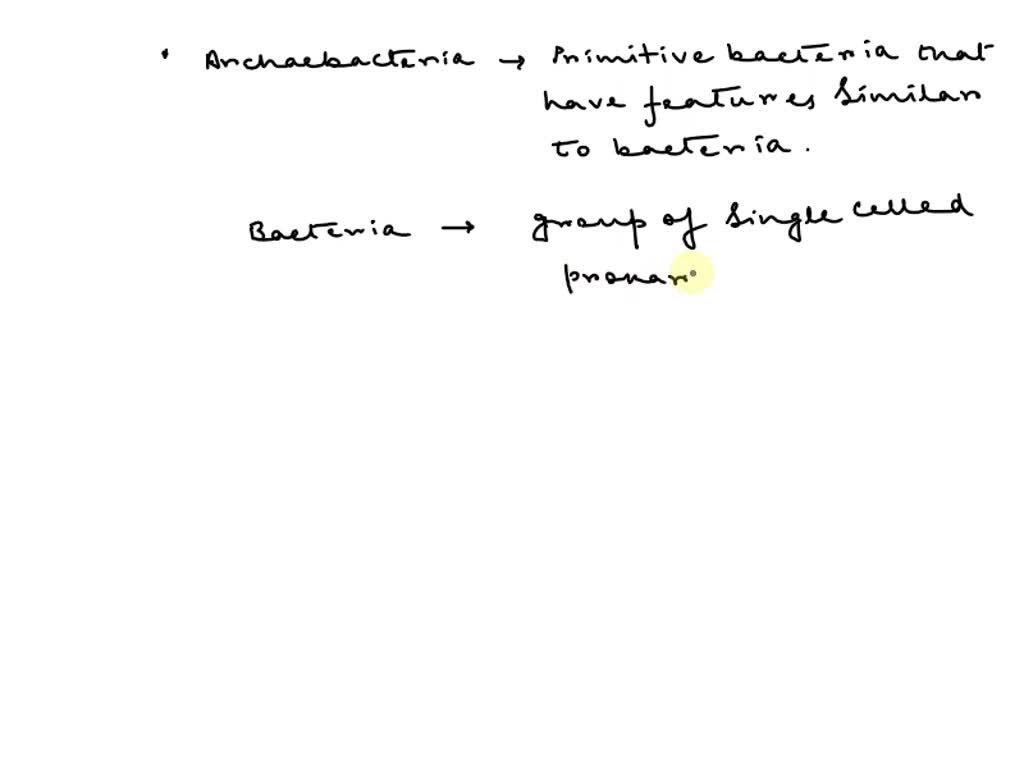 • Archaebacteria → Primitive bacteria that
have features similar
to bacteria.
Bacteria → group of single celled
prokar